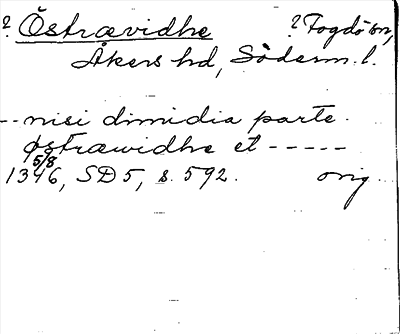 ? Östrævidhe ? Fogdö sn,
Åkers hd, Söderm. l.
-- nisi dimidia parte
østræwidhe et -----
5/8
1346, SD 5, s. 592. orig.